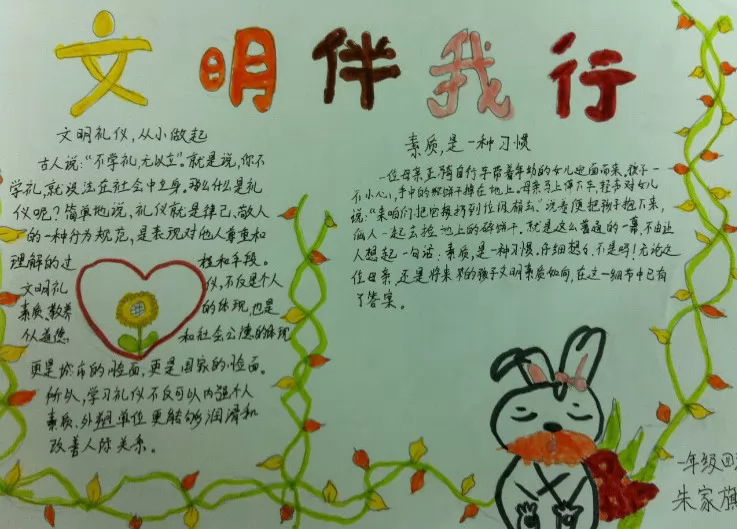 文明伴我行
文明礼仪,从小做起
古人说:“不学礼,无以立”。就是说,你不
学礼,就没法在社会中立身。那么什么是礼
仪呢?简单地说,礼仪就是律己、敬人
的一种行为规范,是表现对他人尊重和
理解的过程和手段。
文明礼仪,不仅是个人
素质、教养的体现,也是
个人道德和社会公德的体现
更是城市的脸面,更是国家的脸面。
所以,学习礼仪不仅可以内强个人
素质、外塑单位更能够润滑和
改善人际关系。
素质,是一种习惯
一位母亲正骑自行车带着年幼的女儿迎面而来,孩子一
不小心,手中的饼干掉在地上。母亲马上停下车,轻声对女儿
说:“来咱们把它捡扔到垃圾箱去。”说着便把孩子抱下来,
俩人一起去捡地上的碎饼干,就是这么普通的一幕,不由让
人想起一句话:素质,是一种习惯,仔细想,不是吗!无论这
位母亲,还是将来的孩子文明素质如何,在这一细节中已有
了答案。
一年级四
朱家旗